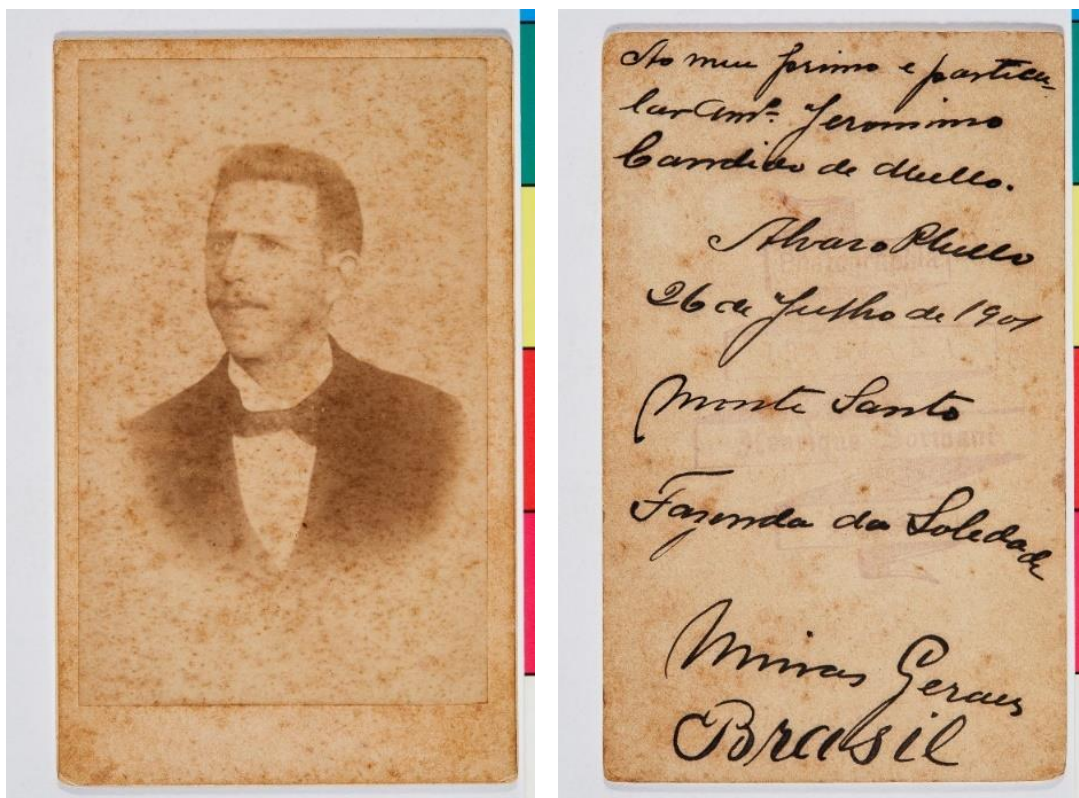 Ao meu primo e particu-
lar Amº. Jeronimo
Candido de Mello.
Alvaro Mello
26 de Julho de 1901
Monte Santo
Fazenda da Soledade
Minas Geraes
Brasil
Henrique